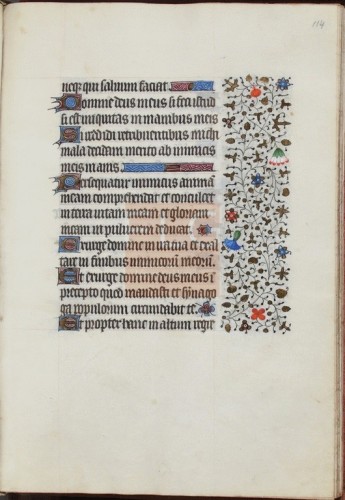 114
neq; qui saluum faciat
Domine deus meus si feci istud
si est iniquitas in manibus meis
Si reddidi retribuentibus michi
mala decidam merito ab inimicis
meis inanis
Persequatur inimicus animã
meam et comprehendat et conculcet
in terra uitam meam et gloriam
meam in puluerem deducat
Exurge domine in ira tua et exal
tare in finibus inimicorũ meorũ
Et exurge domine deus meus ĩ
precepto quod mandasti et synago
ga populorum circundabit te
Et propter hanc in altum regre